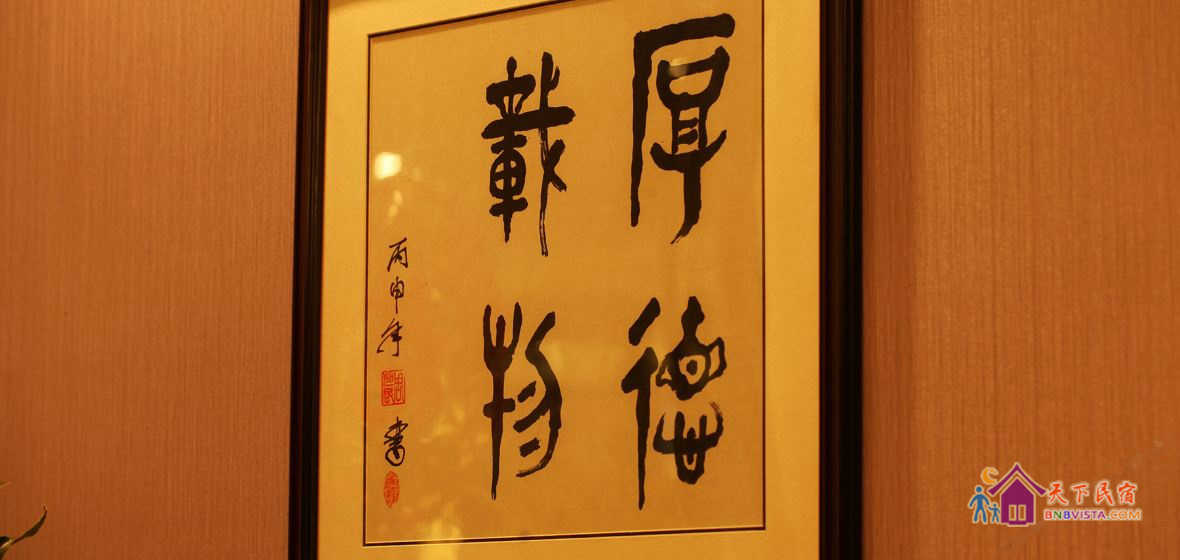 厚德
載物
丙申年
書
天下民宿
BNBVISTA.COM